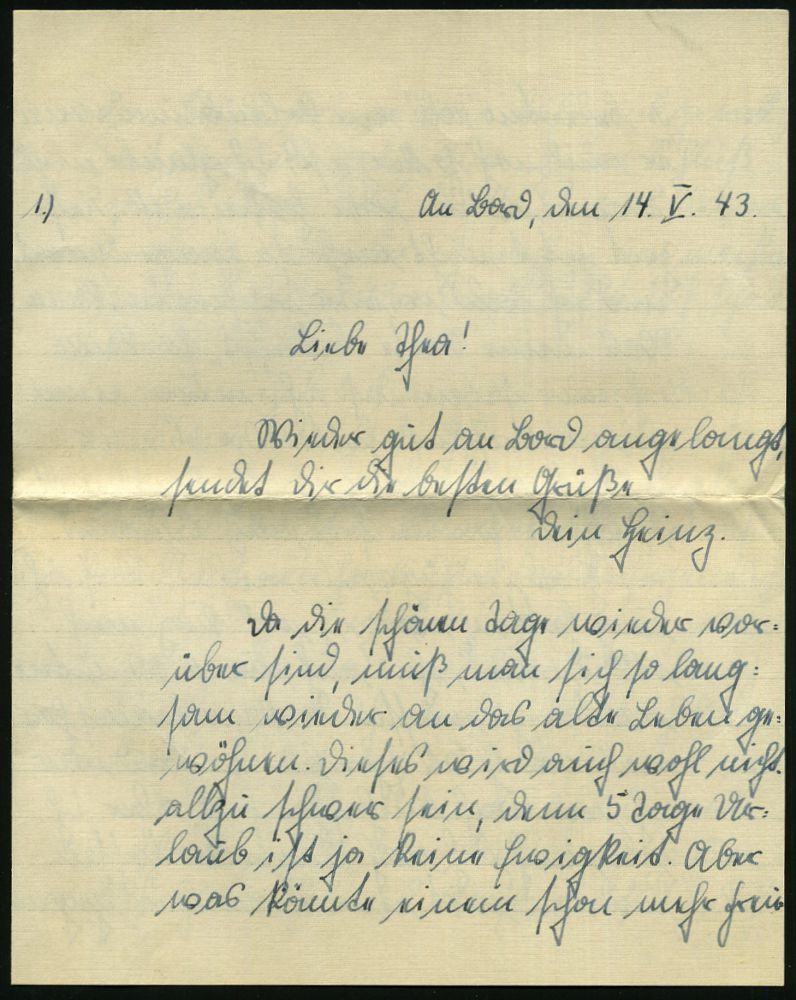 1.)
An Bord, den 14. V. 43.
Liebe Thea!
Wieder gut an Bord angelangt,
sendet Dir die besten Grüße
Dein Heinz.
Da die schönen Tage wieder vor=
über sind, muß man sich so lang=
sam wieder an das alte Leben ge=
wöhnen. Dieses wird auch wohl nicht
allzu schwer sein, denn 5 Tage Ur=
laub ist ja keine Ewigkeit. Aber
was könnte einem schon mehr freu=